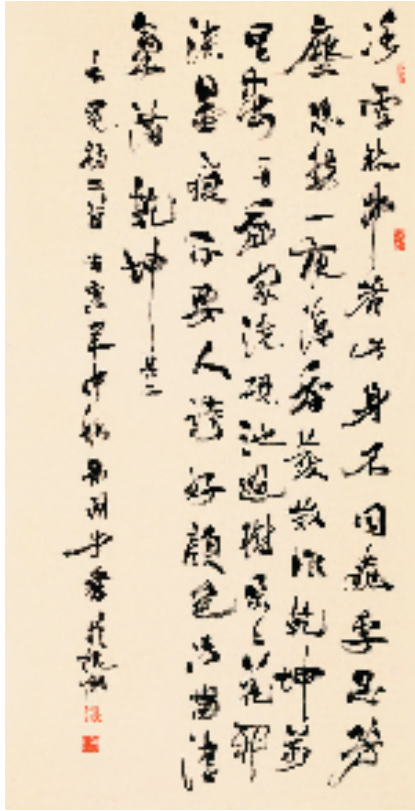 冰雪林中著此身不同桃李混芳
塵忽然一夜清香發散作乾坤萬
里春其一吾家洗硯池邊樹朵々花開
淡墨痕不要人誇好顏色只留清
氣滿乾坤其二
王冕詩二首寅年中秋